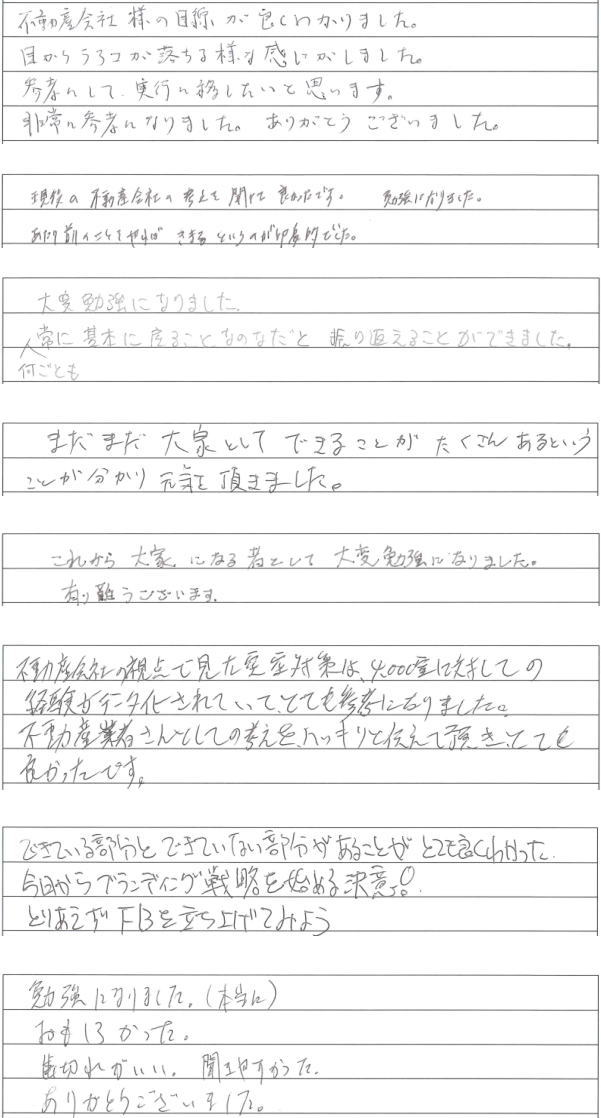 不動産会社様の目線が良くわかりました。
目からうろコが落ちる様な感じがしました。
参考にして、実行に移したいと思います。
非常に参考になりました。ありがとうございました。
現役の不動産会社の考えを聞けて良かったです。 勉強になりました。
あたり前のことをやれば きまる というのが印象的でした。
大変勉強になりました。
常に基本に戻ることなのだなと 振り返えることができました。
何ごとも
まだまだ 大家として できることが たくさん あるという
ことが分かり 元気を頂きました。
これから 大家になる者として 大変勉強になりました。
有り難うございます。
不動産会社の視点で見た空室対策は、4,000室に対しての
経験がデータ化されていて、とても参考になりました。
不動産業者さんとしての考えを、ハッキリと伝えて頂き、とても
良かったです。
できている部分とできていない部分があることがとても良くわかった。
今日からブランディング戦略を始める決意!
とりあえずFBを立ち上げてみよう
勉強になりました。(本当に)
おもしろかった。
歯切れがいい。 聞きやすかった。
ありがとうございました。